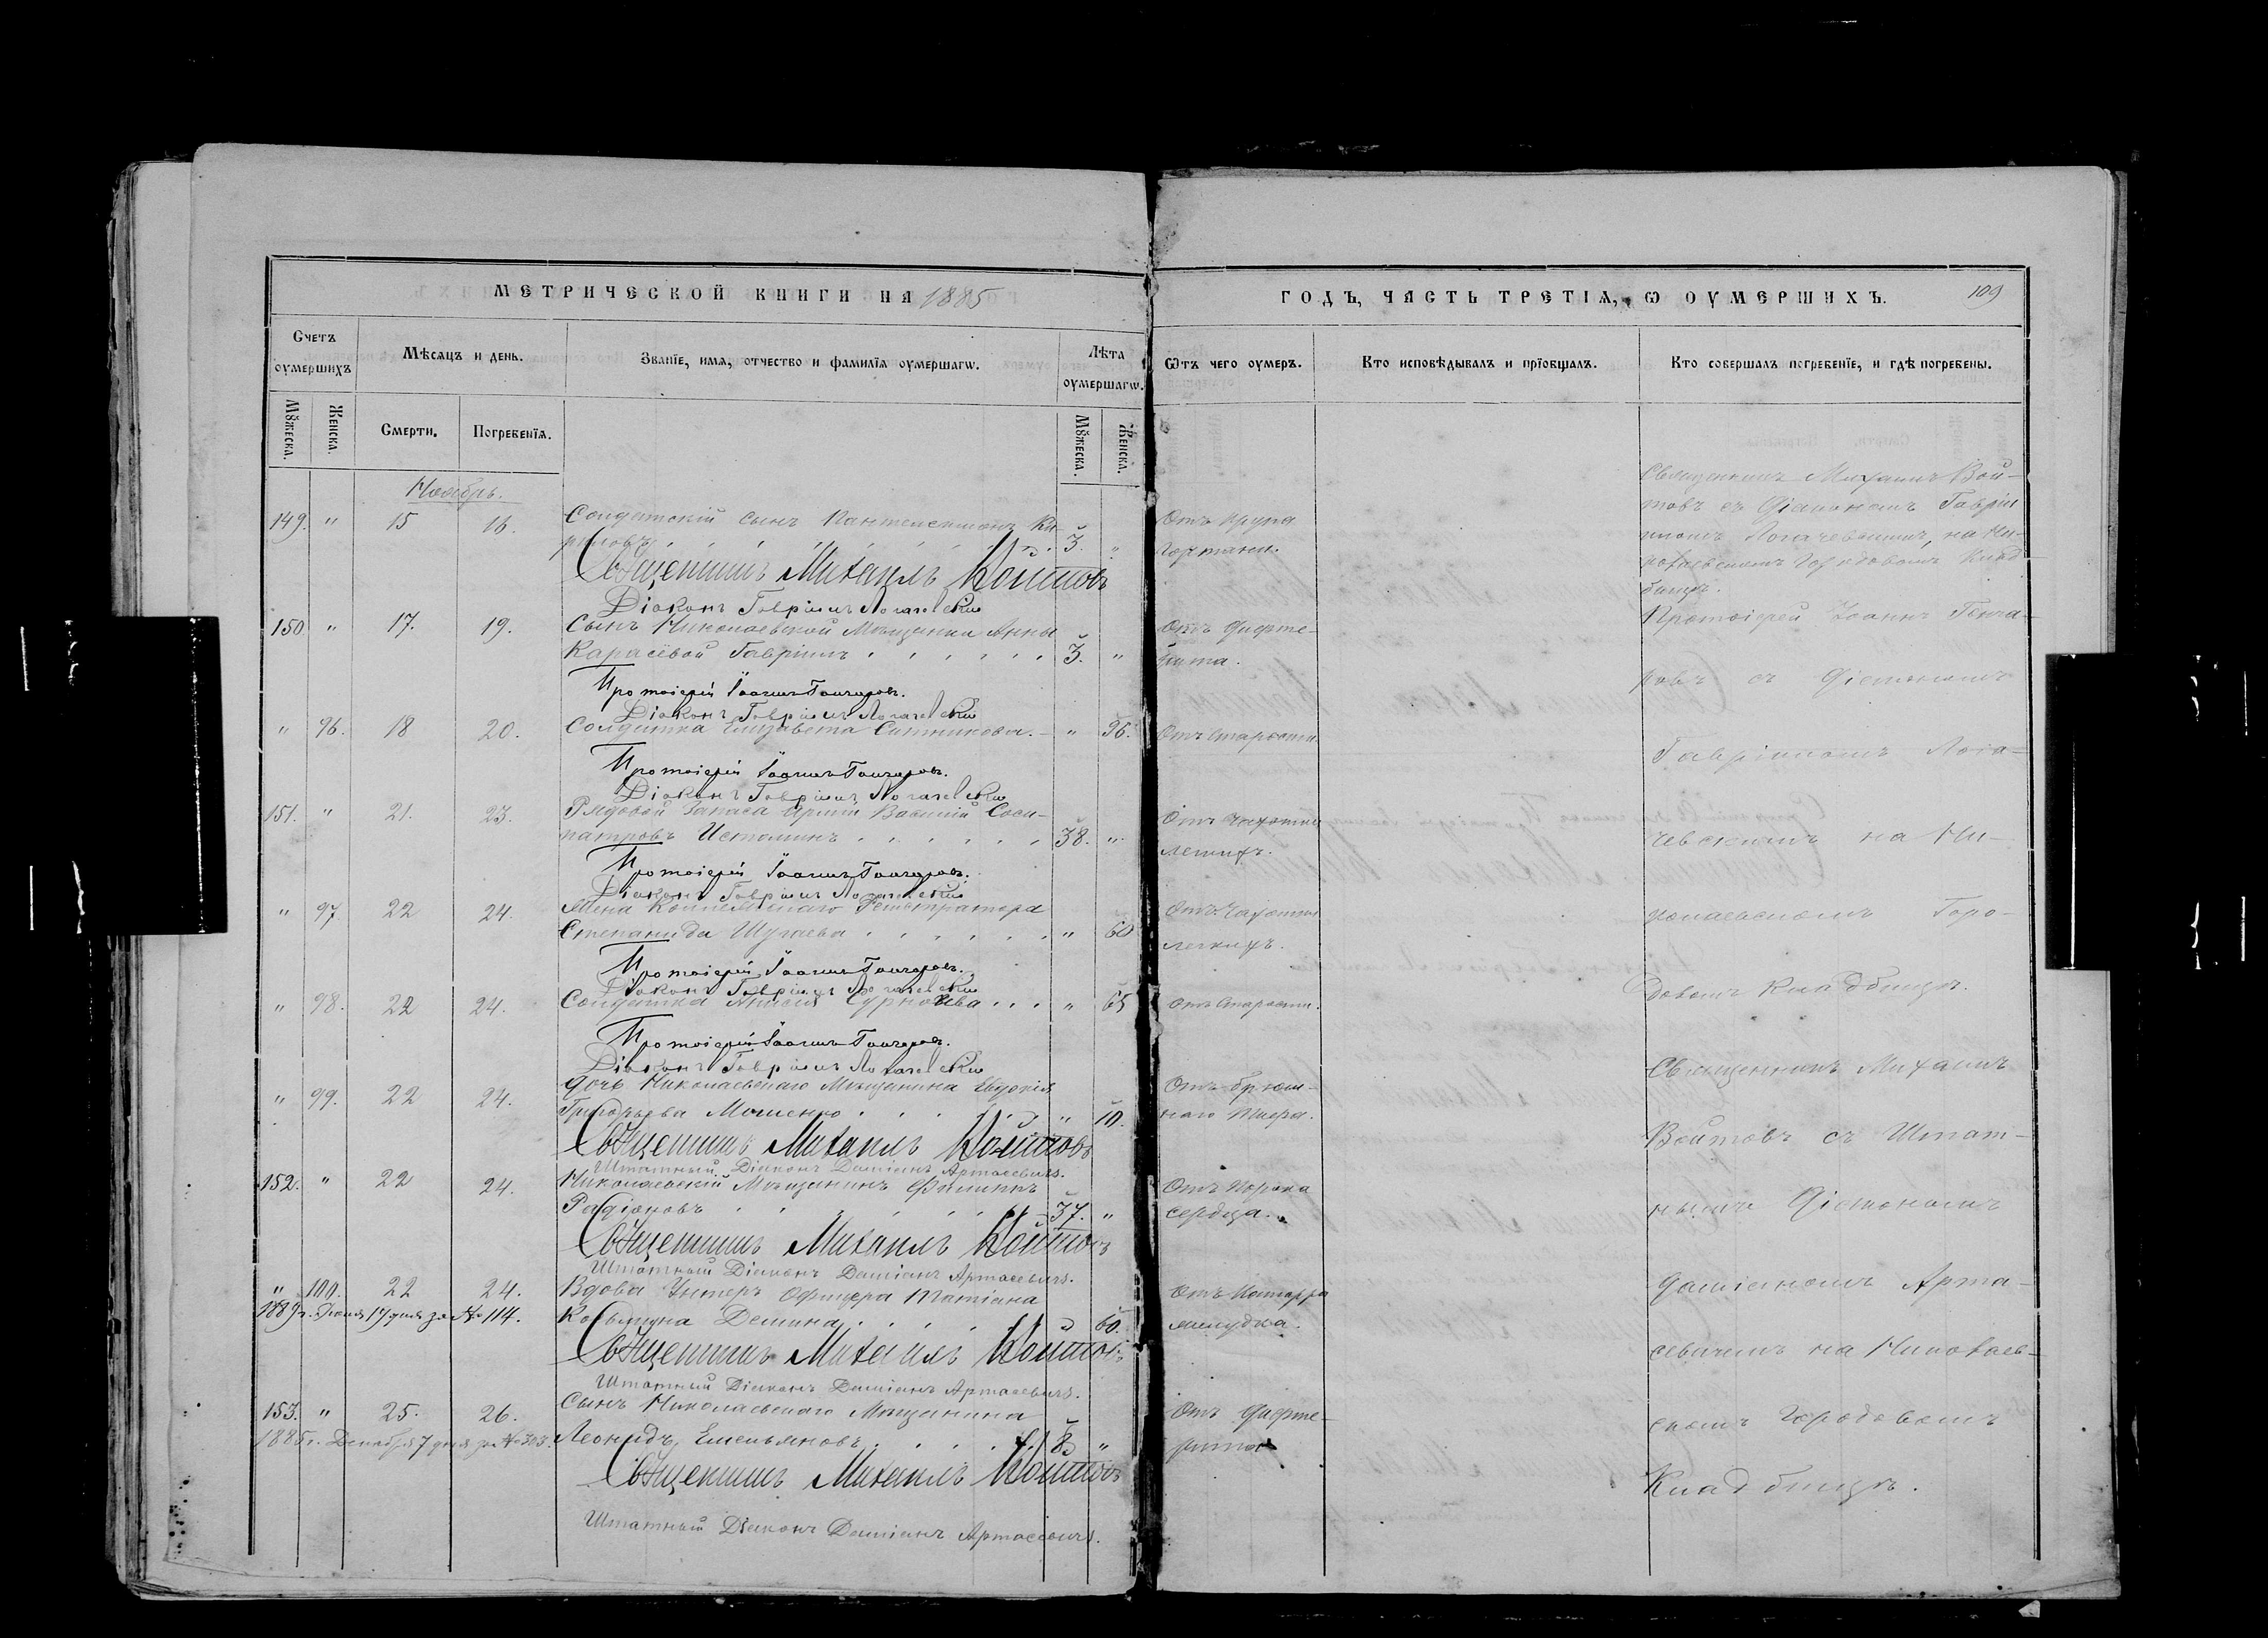 МЕТРИЧЕСКОЙ КНИГИ НА 1885
ГОДЪ, ЧАСТЬ ТРЕТІѦ, Ѡ ОУМЕРШИХЪ.
109
Счетъ оумершихъ
Мѣсяцъ и день.
Званіе, имѧ, отчество и фамиліѧ оумершагѡ.
Лѣта оумершагѡ.
Ѿтъ чего оумеръ.
Кто исповѣдывалъ и пріобщалъ.
Кто совершалъ погребеніе, и гдѣ погребены.
Мꙋжеска.
Женска.
Смерти.
Погребеніѧ.
Мꙋжеска.
Женска.
Ноябрь.
149. " 15 16. Солдатскій сынъ Пантелеимонъ Ки-
риловъ 3. " Отъ крупа
гортани.
Священникъ Михаилъ Войтовъ
Діаконъ Гавріилъ Логачевскій
Священникъ Михаилъ Вой-
товъ съ Діакономъ Гаврі
иломъ Логачевскимъ, на Ни-
колаевскомъ Городовомъ Клад-
бищѣ.
150. " 17. 19. Сынъ Николаевской Мѣщанки Анны
Карасёвой Гавріилъ 3. " Отъ дифте-
рита.
Протоіерей Іоаннъ Гончаровъ.
Діаконъ Гавріилъ Логачевскій
" 96. 18 20. Солдатка Елизавета Ситникова. " 96. Отъ старости
Протоіерей Іоаннъ Гончаровъ.
Діаконъ Гавріилъ Логачевскій
151. " 21. 23. Рядовой Запаса Арміи Василій Соси-
патровъ Истоминъ 38. " Отъ чахотки
легкихъ.
Протоіерей Іоаннъ Гончаровъ.
Діаконъ Гавріилъ Логачевскій
" 97. 22 24. Жена Коллежскаго Регистратора
Степанида Шугаева " 60 Отъ чахотки
легкихъ.
Протоіерей Іоаннъ Гончаровъ.
Діаконъ Гавріилъ Логачевскій
" 98. 22 24. Солдатка " 65 Отъ старости.
Протоіерей Іоаннъ Гончаровъ.
Діаконъ Гавріилъ Логачевскій
Протоіерей Іоаннъ Гонча-
ровъ съ Діакономъ
Гавріиломъ Лога-
чевскимъ на Ни-
колаевскомъ Горо-
довомъ Кладбищѣ.
" 99. 22 24. Дочь Николаевскаго Мѣщанина Евдокія
Григорьева Мошенко " 10. Отъ брюш-
наго тифа.
Священникъ Михаилъ Войтовъ
Штатный Діаконъ Даміанъ Артасевичъ.
152. " 22 24. Николаевскій Мѣщанинъ Филиппъ
Радіоновъ 37. " Отъ порока
сердца.
Священникъ Михаилъ Войтовъ
Штатный Діаконъ Даміанъ Артасевичъ.
" 100. 22 24. Вдова Унтеръ Офицера Татіана
Козьмина Демина 60. Отъ катарра
желудка.
Іюня 17 дня за № 114.
Священникъ Михаилъ Войтовъ
Штатный Діаконъ Даміанъ Артасевичъ.
153. " 25. 26. Сынъ Николаевскаго Мѣщанина
Леонидъ Емельяновъ 8 " Отъ дифте-
рита
1885 г. Декабря 7 дня за № 303.
Священникъ Михаилъ Войтовъ
Штатный Діаконъ Даміанъ Артасевичъ.
Священникъ Михаилъ
Войтовъ съ Штат-
нымъ Діакономъ
Даміаномъ Арта-
севичемъ на Николаев-
скомъ Городовомъ
Кладбищѣ.